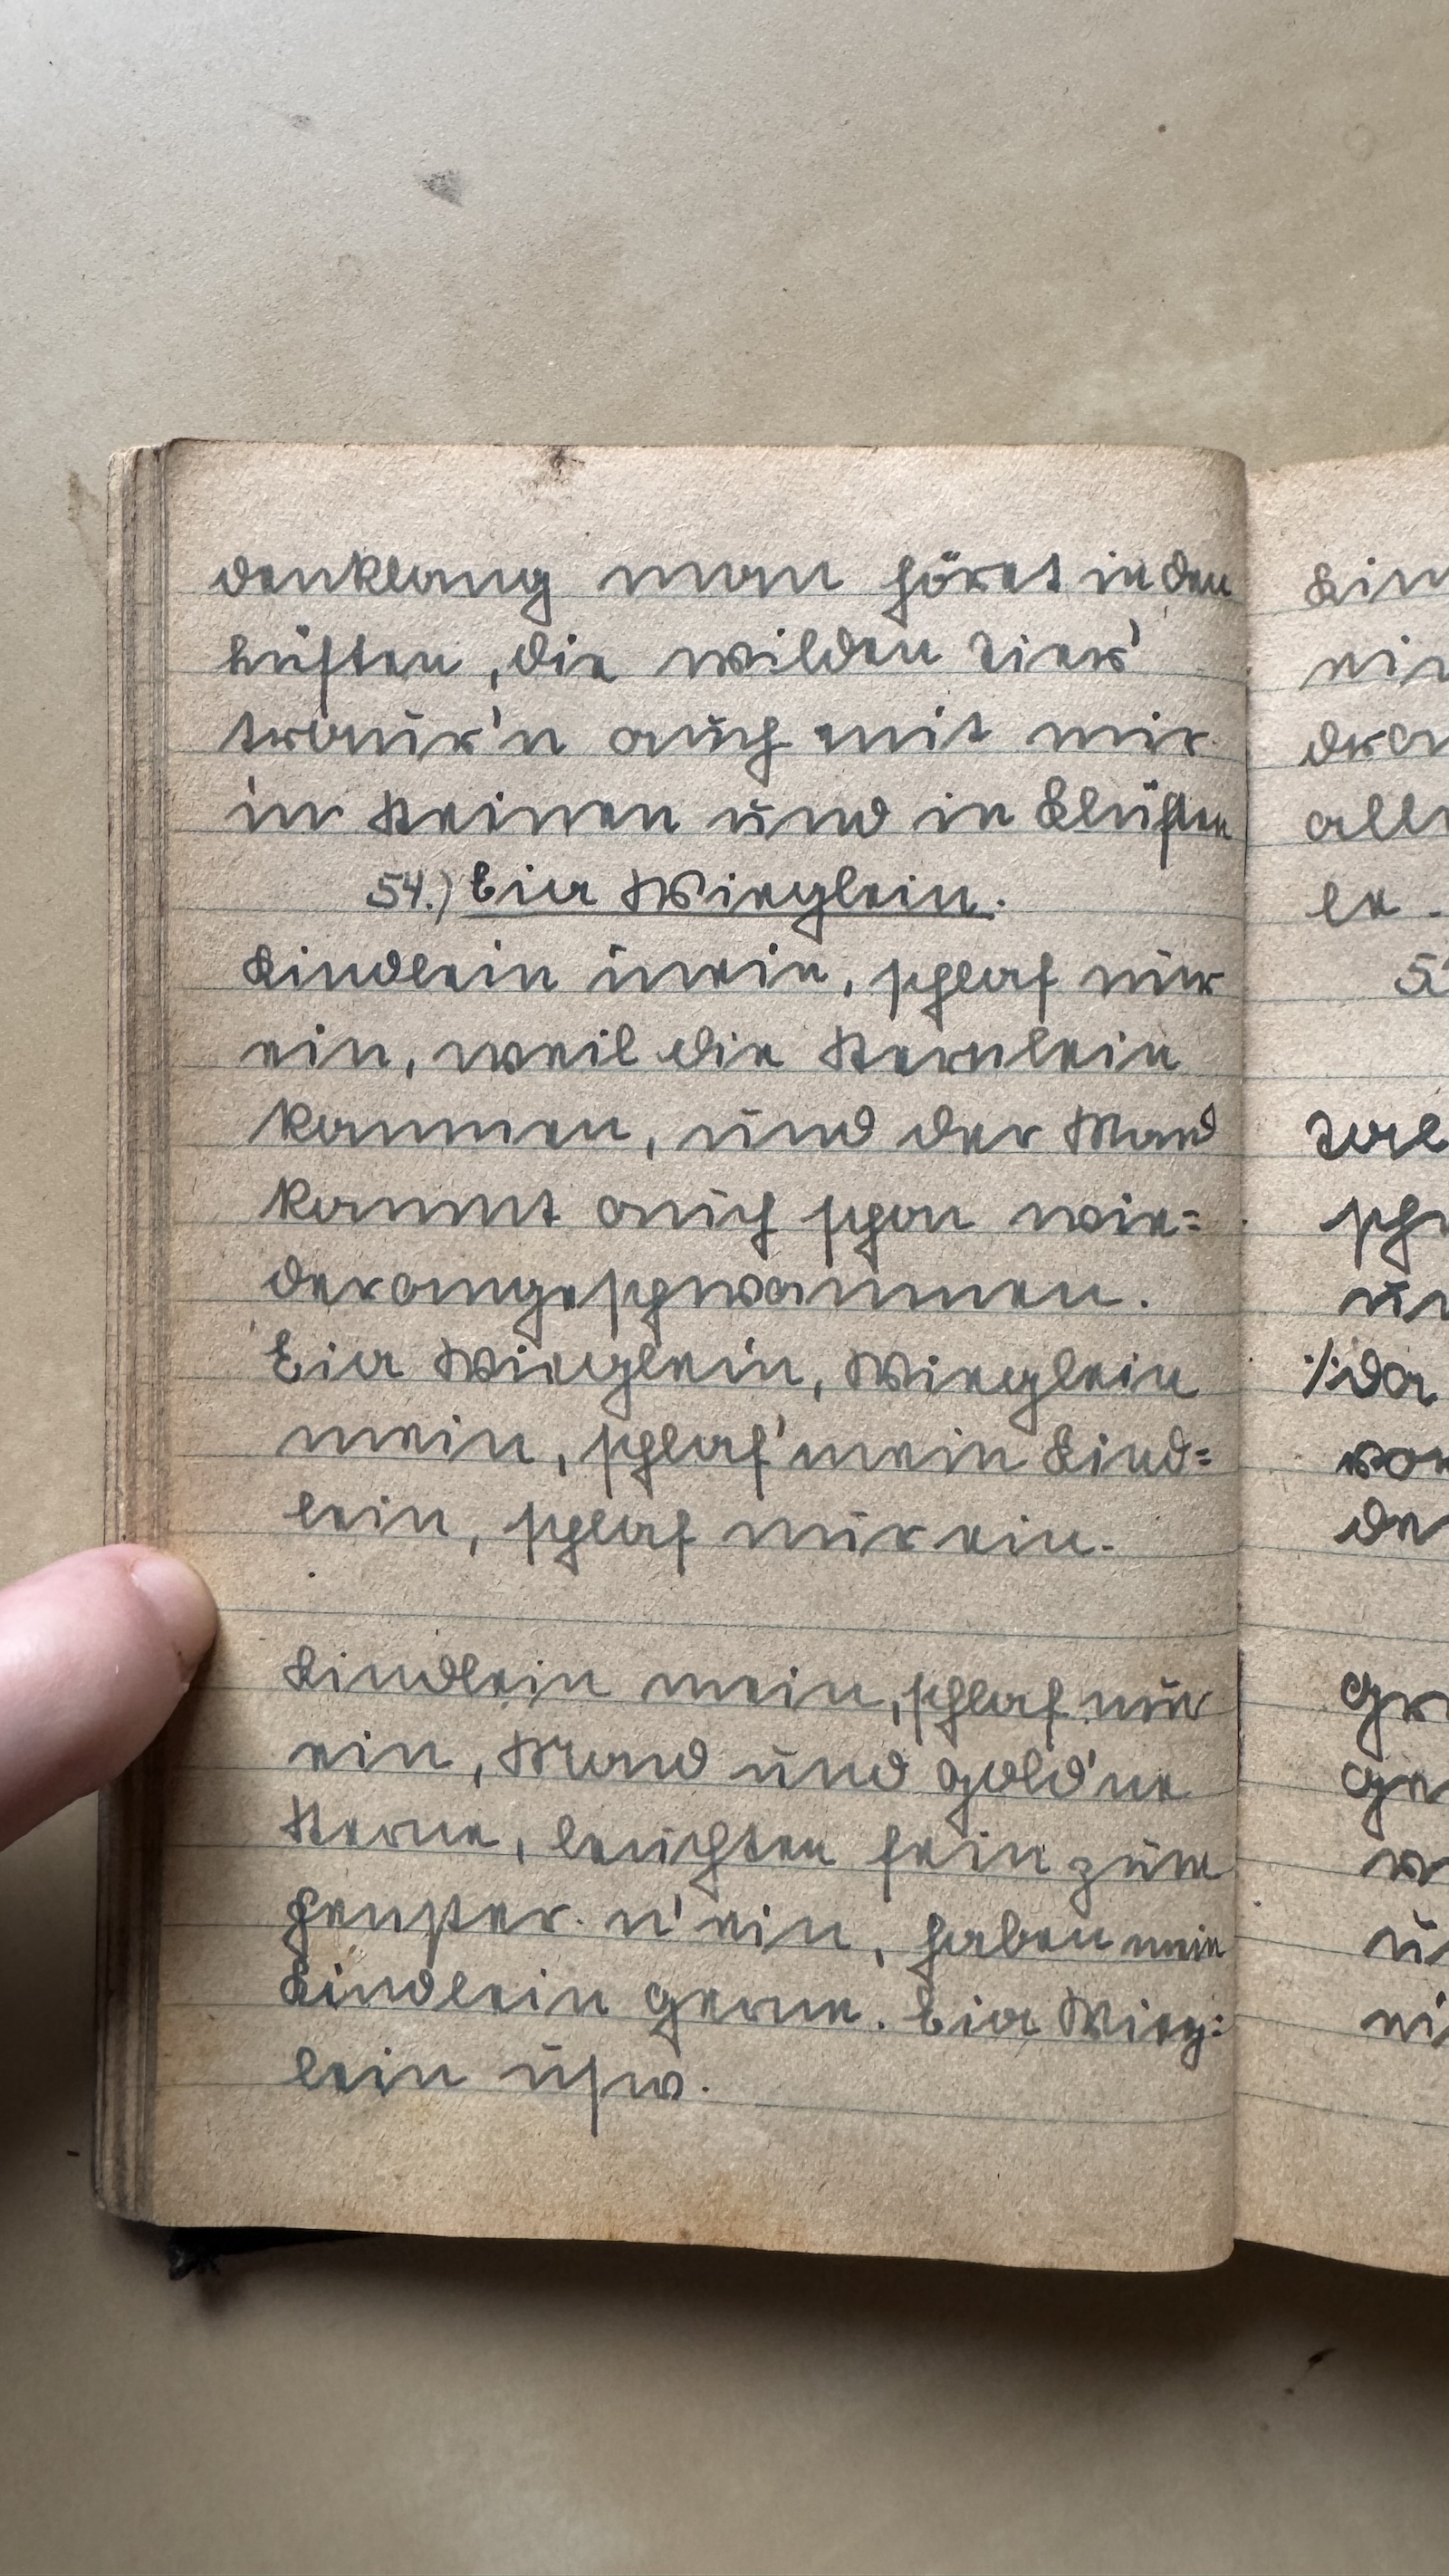 denklang man höret in den
Lüften, die wilden Tier'
traur'n auch mit mir
in Steinen und in Klüften
54.) Eia Wieglein.
Kindlein mein, schlaf nur
ein, weil die Sternlein
kommen, und der Mond
kommt auch schon wie=
derangeschwommen.
Eia Wieglein, Wieglein
mein, schlaf' mein Kind=
lein, schlaf nur ein.
Kindlein mein, schlaf nur
ein, Mond und gold'ne
Sterne, leuchten fein zum
Fenster n'ein, haben mein
Kindlein gerne. Eia Wieg=
lein usw.